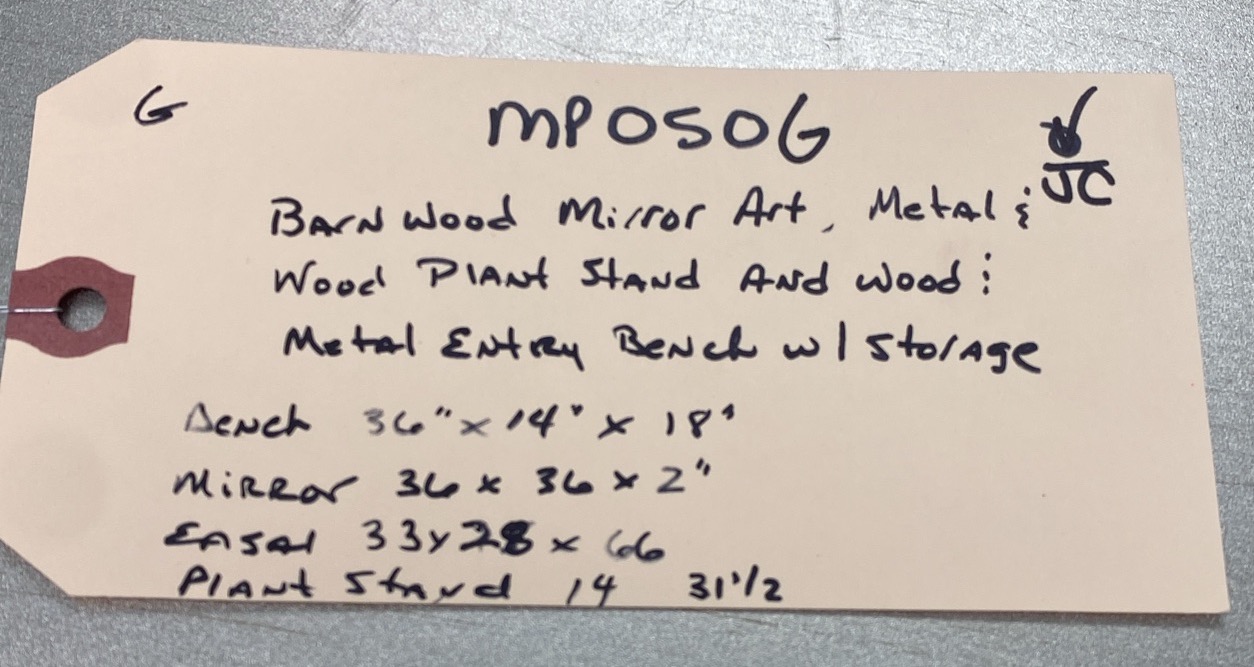 G
MPOSOG
JC
Barn Wood Mirror Art, Metal &
Wood Plant Stand And Wood &
Metal Entry Bench w/ Storage
Bench 36" x 14" x 18"
Mirror 36 x 36 x 2"
Easal 33 x 28 x 66
Plant Stand 14 31 1/2